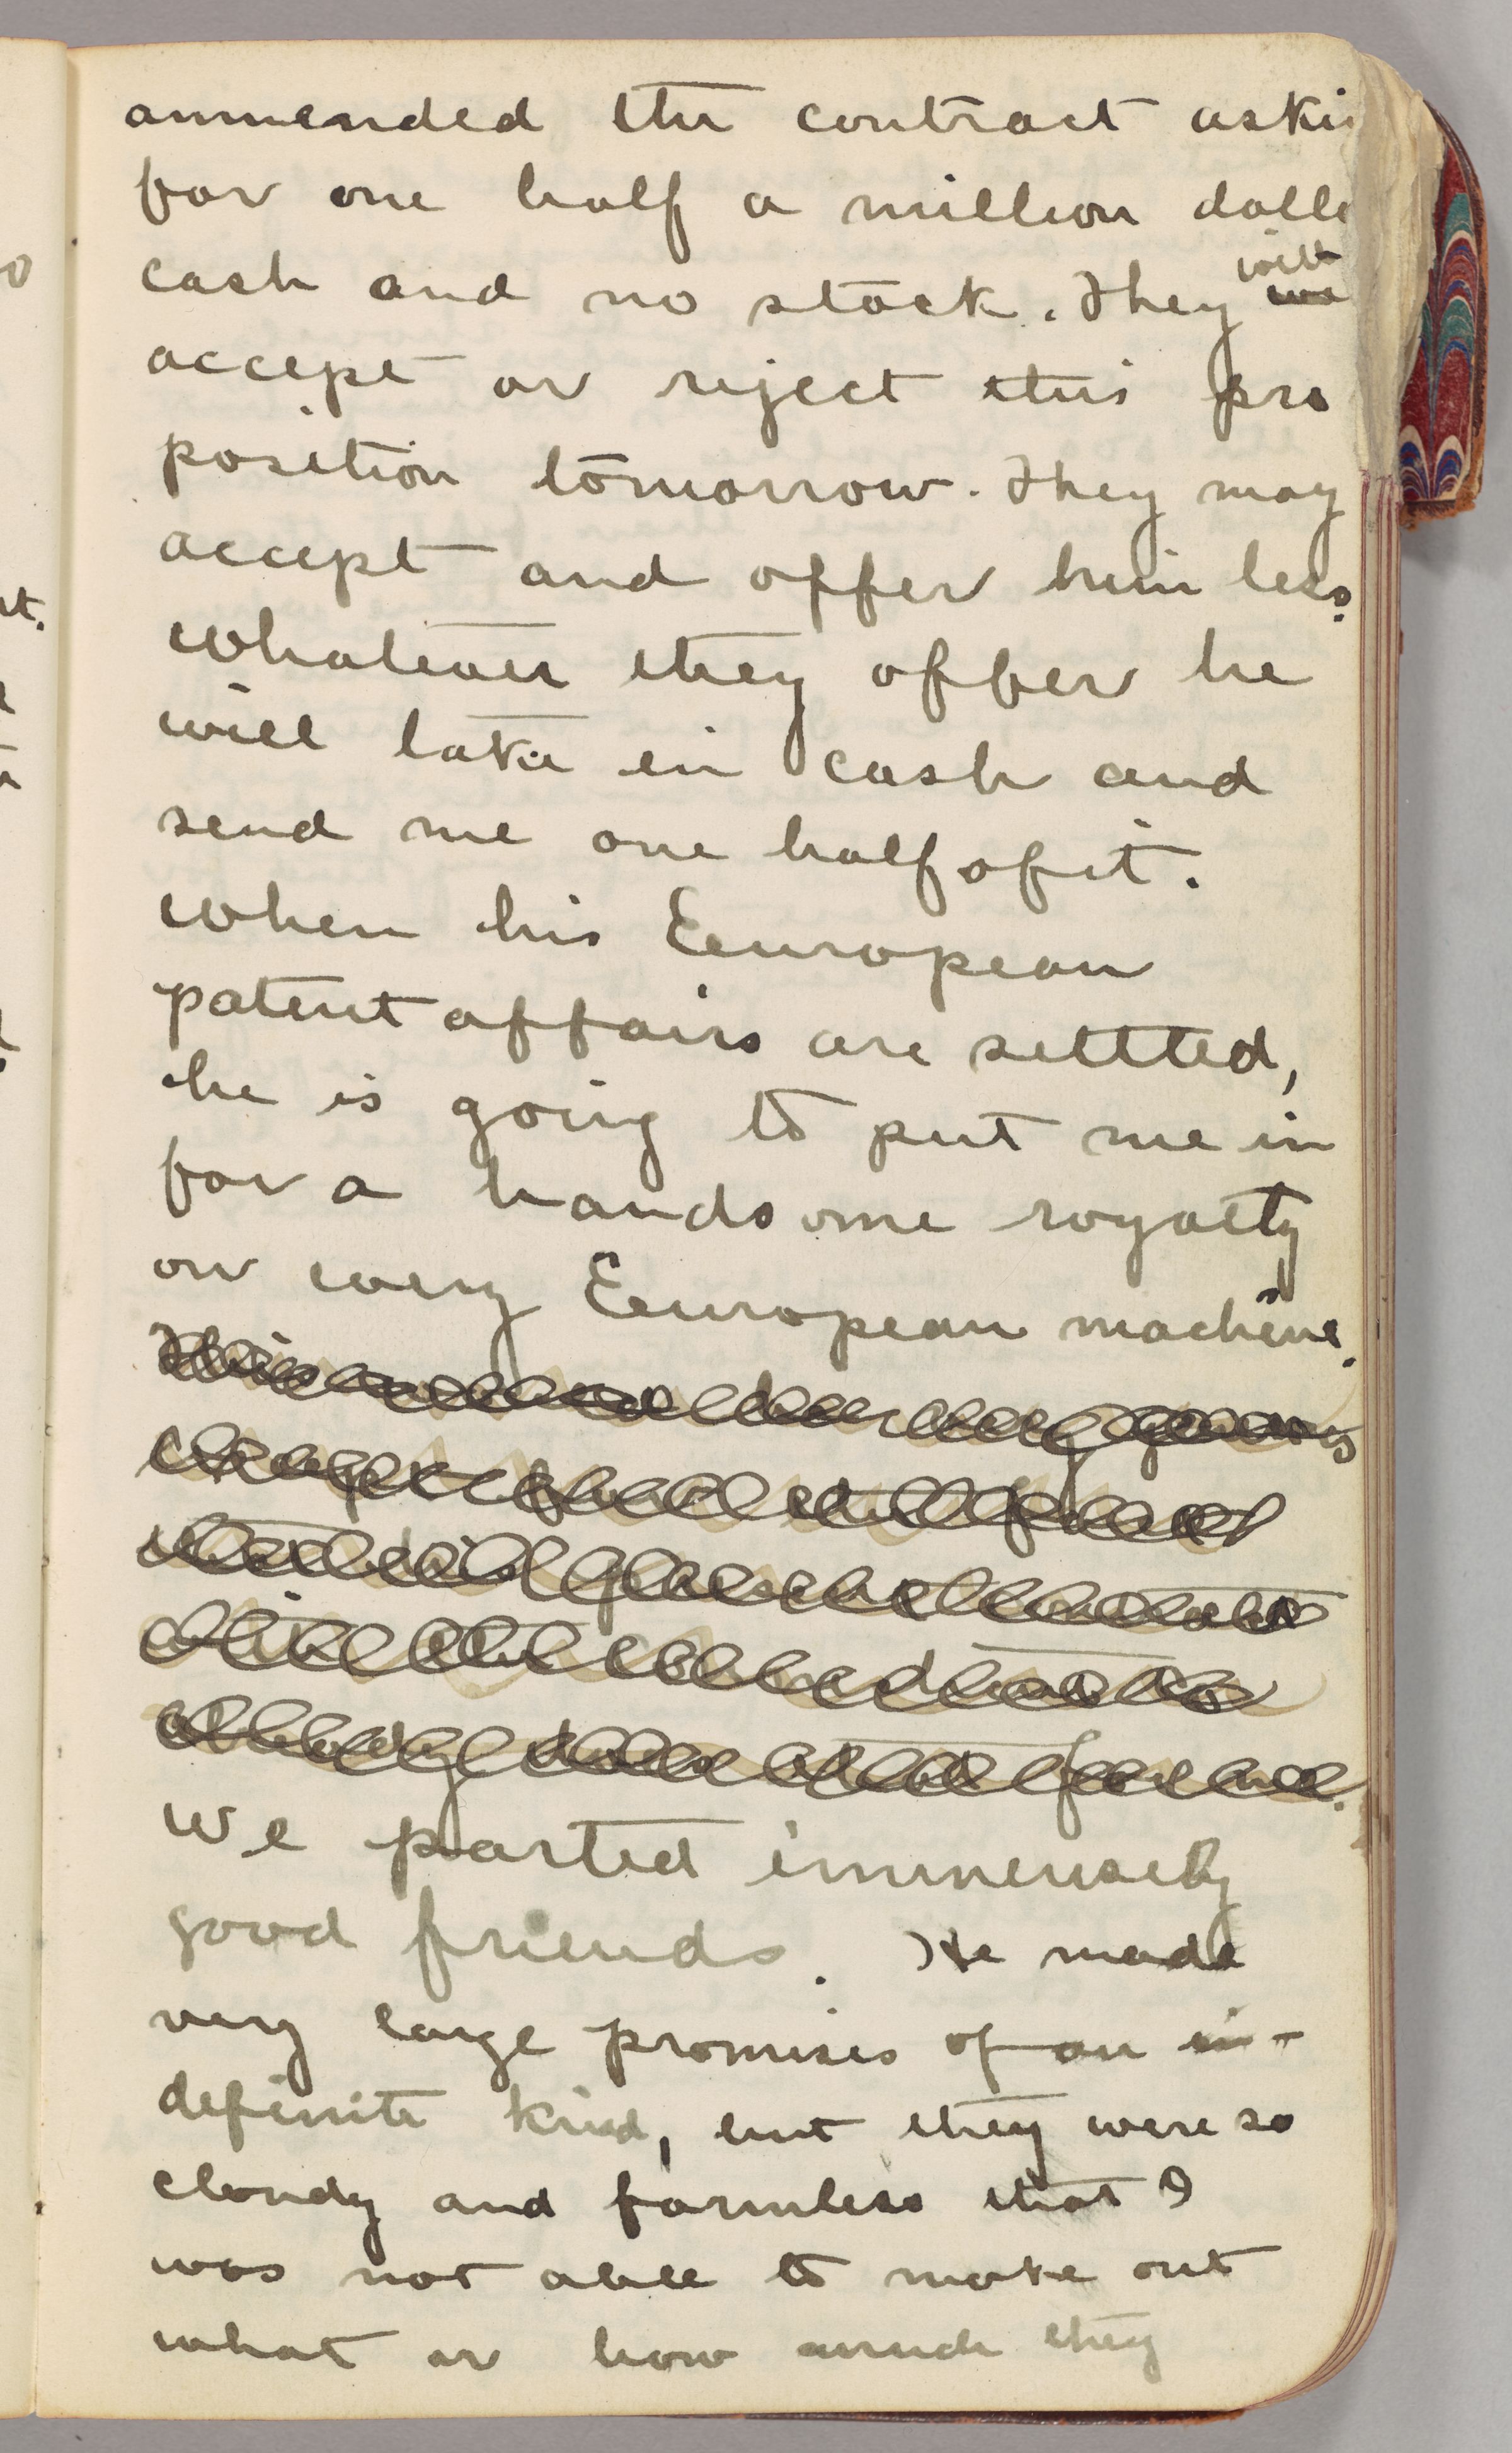 ammended the contract aski
for one half a million dolla
cash and no stock. They will
accept or reject this pro
position tomorrow. They may
accept and offer him less.
whatever they offer he
will take in cash and
send me one half of it.
when his Eeuropean
patent affairs are settled,
he is going to put me in
for a handsome royalty
on every Eeuropean machine.
This
we parted immensely
good friends. He made
very large promises of an in-
definite kind, but they were so
cloudy and formless that I
was not able to make out
what or how much they